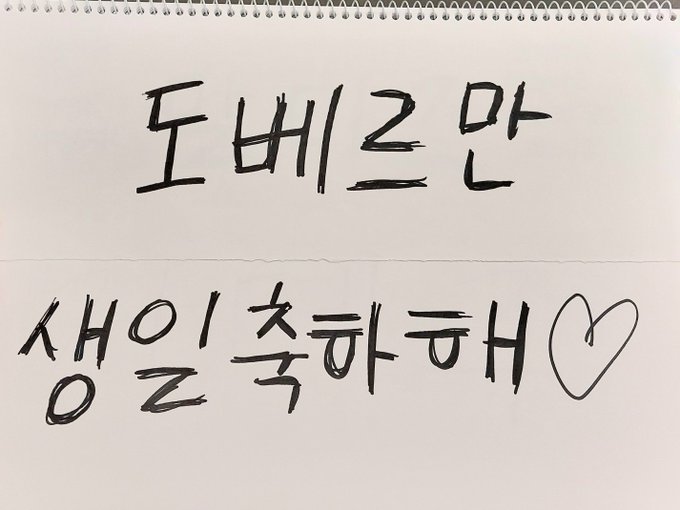 도베르만
생일축하해♡